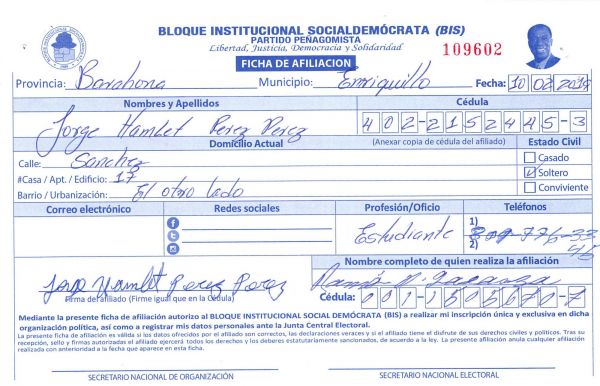 BLOQUE INSTITUCIONAL SOCIALDEMÓCRATA (BIS)
PARTIDO PEÑAGOMISTA
Libertad, Justicia, Democracia y Solidaridad
109602
FICHA DE AFILIACION
Provincia: Barahona Municipio: Enriquillo Fecha: 10 02 2018
Nombres y Apellidos Cédula
Jorge Hamlet Perez Perez 402-2152445-3
Domicilio Actual (Anexar copia de cédula del afiliado) Estado Civil
Calle: Sanchez Casado
#Casa / Apt. / Edificio: 17 Soltero
Barrio / Urbanización: El otro lado Conviviente
Correo electrónico Redes sociales Profesión/Oficio Teléfonos
Estudiante 1) 809-776-33
2) 45
Nombre completo de quien realiza la afiliación
Jorge Hamlet Perez Perez Ramón
Firma del afiliado (Firme igual que en la Cédula) Cédula: 001-1505670-7
Mediante la presente ficha de afiliación autorizo al BLOQUE INSTITUCIONAL SOCIAL DEMÓCRATA (BIS) a realizar mi inscripción única y exclusiva en dicha
organización política, así como a registrar mis datos personales ante la Junta Central Electoral.
La presente ficha de afiliación es válida si los datos ofrecidos por el afiliado son correctos, las declaraciones veraces y si el afiliado tiene el disfrute de sus derechos civiles y políticos. Tras su
recepción, sello y firmas autorizadas el afiliado ejercerá todos los derechos y los deberes estatutariamente sancionados, de acuerdo a la ley. La presente afiliación anula cualquier afiliación
realizada con anterioridad a la fecha que aparece en esta ficha.
SECRETARIO NACIONAL DE ORGANIZACIÓN SECRETARIO NACIONAL ELECTORAL